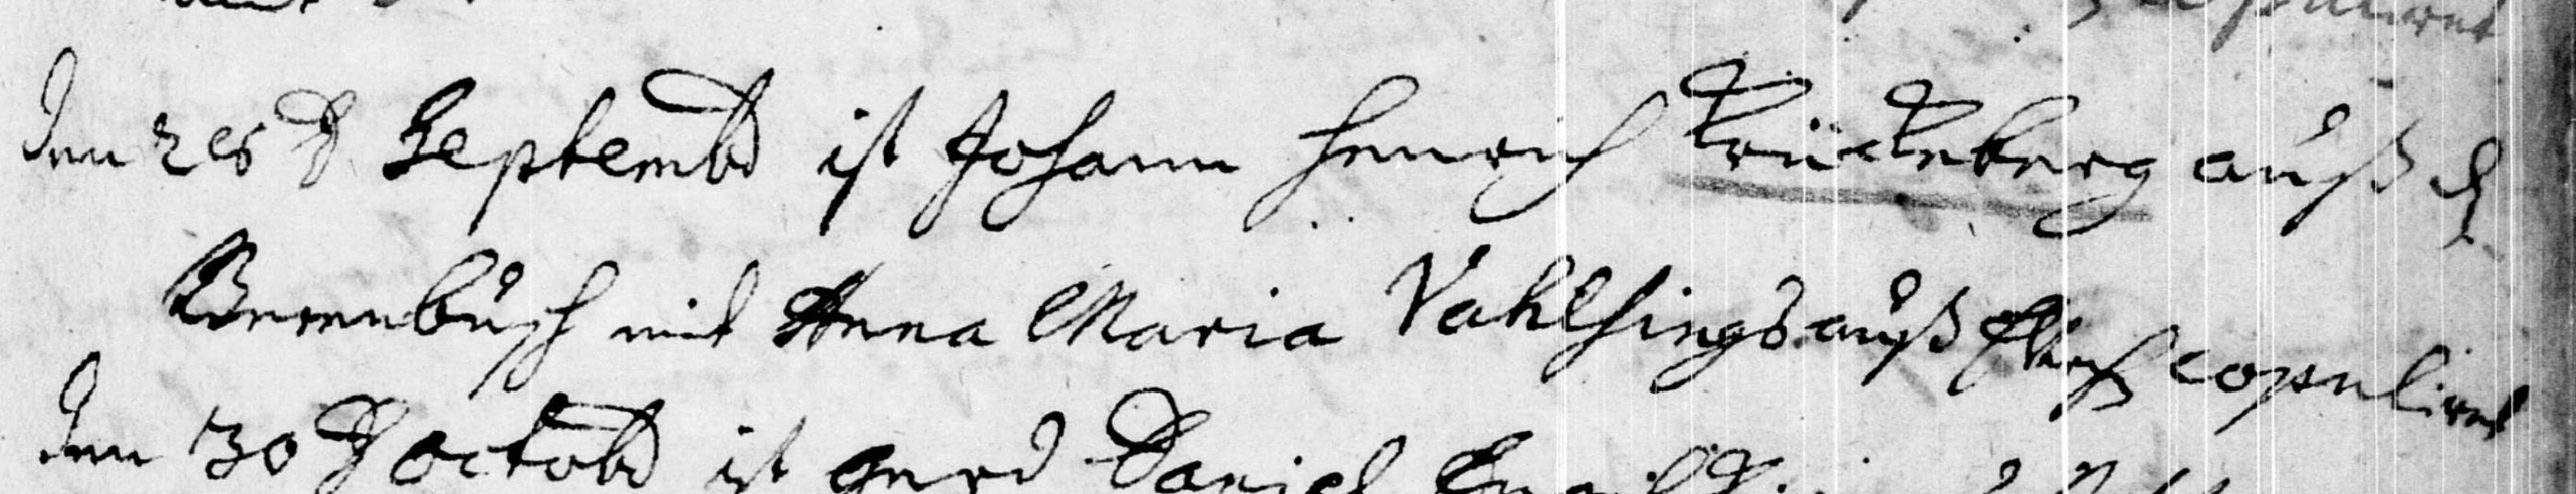 copuliret
den 26 D Septembr ist Johann Henrich Krückeberg auß d
Berenbusch mit Anna Maria Vahlsings auß copuliret
den 30 D Octobr ist Gerd Daniel